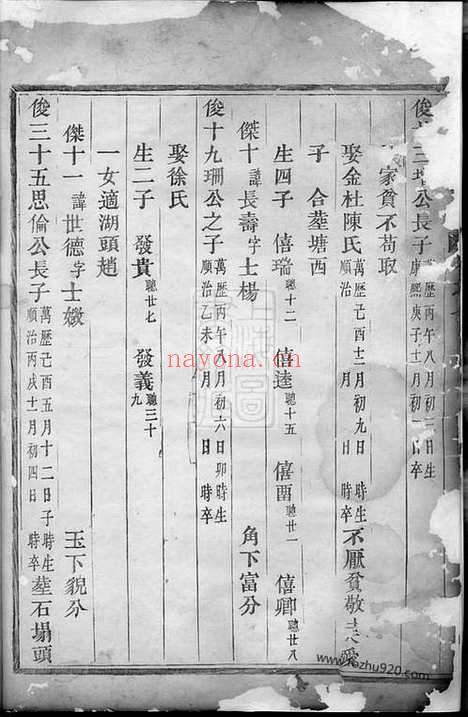 俊十三 公長子 萬歷丙午八月初三日 生
康熙庚子十一月初 日 卒
家貧不苟取
娶金杜陳氏 萬歷己酉二月初九日 時生
順治 月 日 時卒 不厭貧敬夫愛
子 合塟塘西
生四子 僖瑞 聰十二 僖逵 聰十五 僖 聰廿一 僖卿 聰廿八
傑十 諱長壽字士楊 角下富分
俊十九珊公之子 萬歷丙午八月初六日卯時生
順治乙未 月 日 時卒
娶徐氏
生二子 發貴 聰廿七 發義 聰三十九
一女適湖頭趙
傑十一 諱世德字士嫩 玉下貌分
俊三十五思倫公長子 萬歷己酉五月十二日子時生
順治丙戌十二月初四日 時卒 塟石塌頭
nayona.cn
shuzhu920.com